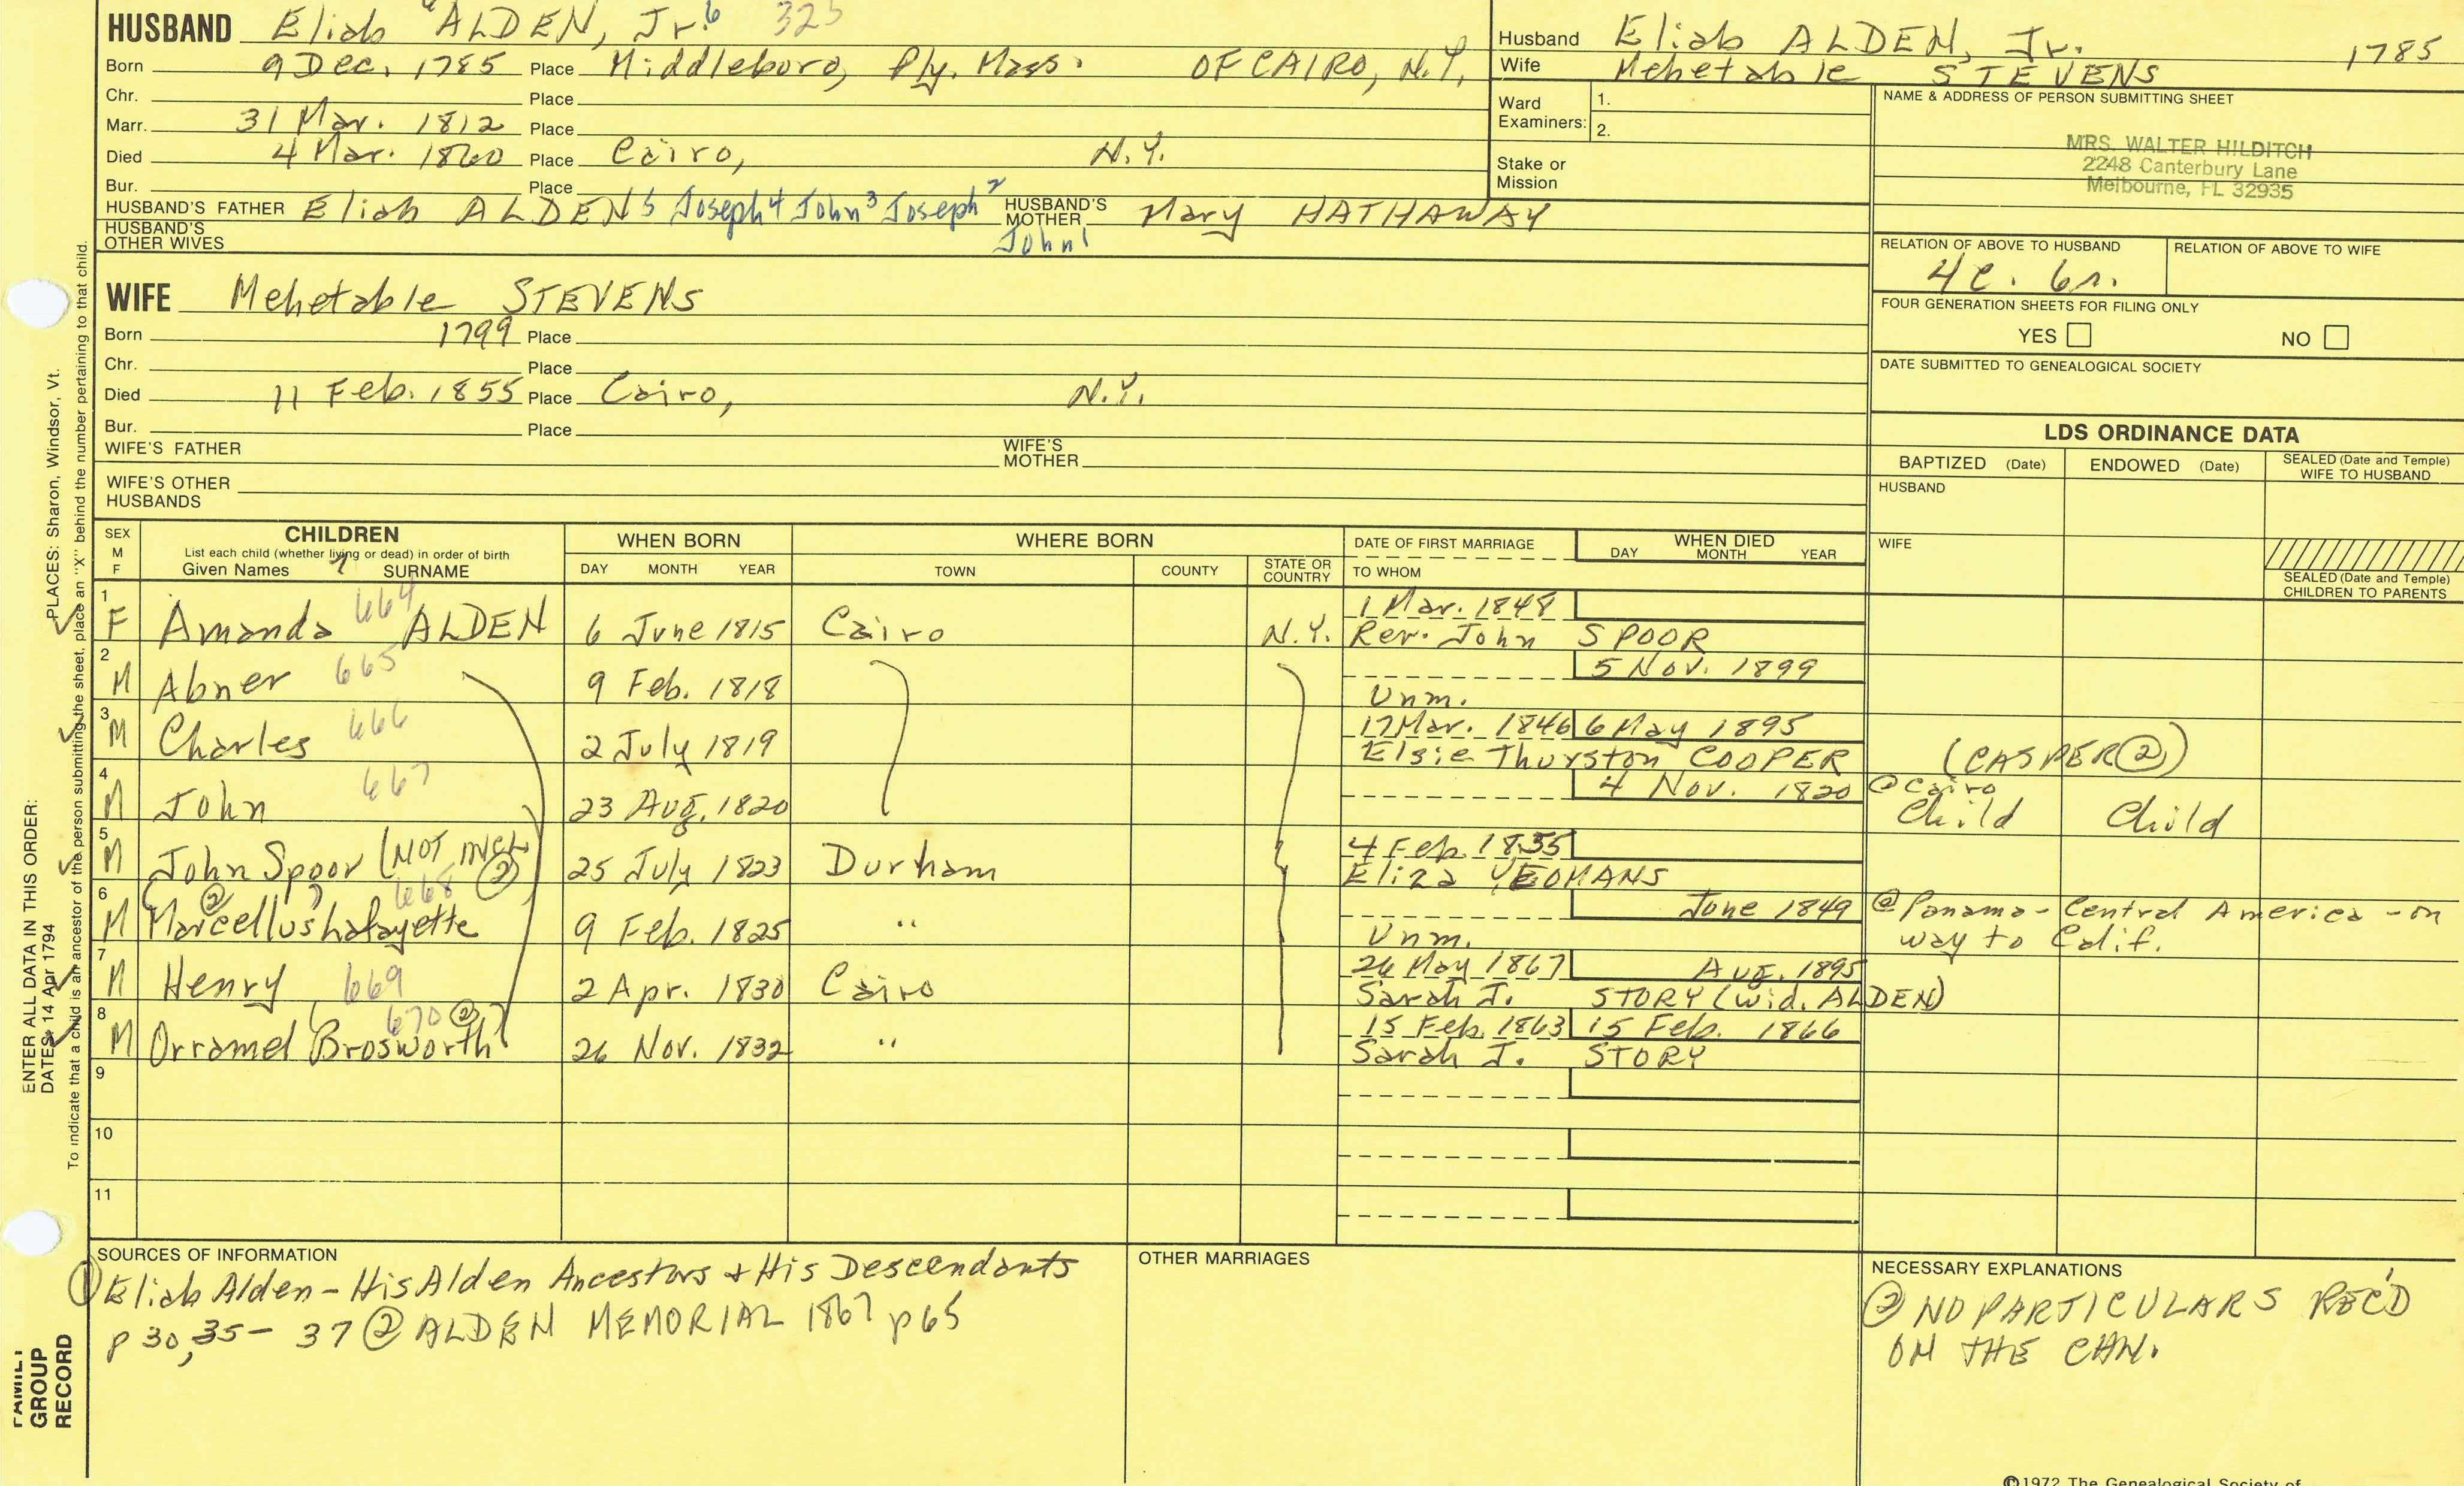 HUSBAND Eliab 6 ALDEN, Jr. 6 325
Born 9 Dec. 1785 Place Middleboro, Ply. Mass. OF CAIRO, N.Y.
Chr. Place
Marr. 31 Mar. 1812 Place
Died 4 Mar. 1860 Place Cairo, N.Y.
Bur. Place
HUSBAND'S FATHER Eliab ALDEN 5 Joseph 4 John 3 Joseph 2 John 1 HUSBAND'S MOTHER Mary HATHAWAY
HUSBAND'S OTHER WIVES
Husband Eliab ALDEN, Jr. 1785
Wife Mehetable STEVENS
Ward Examiners: 1.
2.
Stake or Mission
NAME & ADDRESS OF PERSON SUBMITTING SHEET
MRS. WALTER HILDITCH
2248 Canterbury Lane
Melbourne, FL 32935
RELATION OF ABOVE TO HUSBAND RELATION OF ABOVE TO WIFE
4c. 6r.
FOUR GENERATION SHEETS FOR FILING ONLY
YES NO
DATE SUBMITTED TO GENEALOGICAL SOCIETY
WIFE Mehetable STEVENS
Born 1799 Place
Chr. Place
Died 11 Feb. 1855 Place Cairo, N.Y.
Bur. Place
WIFE'S FATHER WIFE'S MOTHER
WIFE'S OTHER HUSBANDS
LDS ORDINANCE DATA
BAPTIZED (Date) ENDOWED (Date) SEALED (Date and Temple) WIFE TO HUSBAND
HUSBAND
WIFE
SEALED (Date and Temple) CHILDREN TO PARENTS
SEX M F
CHILDREN
List each child (whether living or dead) in order of birth
Given Names 7 SURNAME
WHEN BORN
DAY MONTH YEAR
WHERE BORN
TOWN COUNTY STATE OR COUNTRY
DATE OF FIRST MARRIAGE
TO WHOM
WHEN DIED
DAY MONTH YEAR
1 F Amanda 664 ALDEN 6 June 1815 Cairo N.Y. 1 Mar. 1848
Rev. John SPOOR
2 M Abner 665 9 Feb. 1818 5 Nov. 1899
Unm.
3 M Charles 666 2 July 1819 17 Mar. 1846 6 May 1895
Elsie Thurston COOPER (CASPER ②)
4 M John 667 23 Aug. 1820 4 Nov. 1820 @ Cairo
Child Child
5 M John Spoor (NOT INCL ②) 25 July 1823 Durham 4 Feb. 1855
Eliza YEOMANS
6 M (② ?) Marcellus Lafayette 668 9 Feb. 1825 " June 1849 @ Panama - Central America - on
Unm. way to Calif.
7 M Henry 669 2 Apr. 1830 Cairo 26 May 1867 Aug. 1895
Sarah J. STORY (wid. ALDEN)
8 M Orramel (Brosworth ② ?) 670 26 Nov. 1832 " 15 Feb. 1863 15 Feb. 1866
Sarah J. STORY
9
10
11
SOURCES OF INFORMATION
① Eliab Alden - His Alden Ancestors + His Descendants
p 30, 35 - 37 ② ALDEN MEMORIAL 1867 p 65
OTHER MARRIAGES
NECESSARY EXPLANATIONS
② NO PARTICULARS REC'D
ON THE CHN.
ENTER ALL DATA IN THIS ORDER:
DATES: 14 Apr 1794
PLACES: Sharon, Windsor, Vt.
To indicate that a child is an ancestor of the person submitting the sheet, place an "X" behind the number pertaining to that child.
FAMILY GROUP RECORD
©1972 The Genealogical Society of